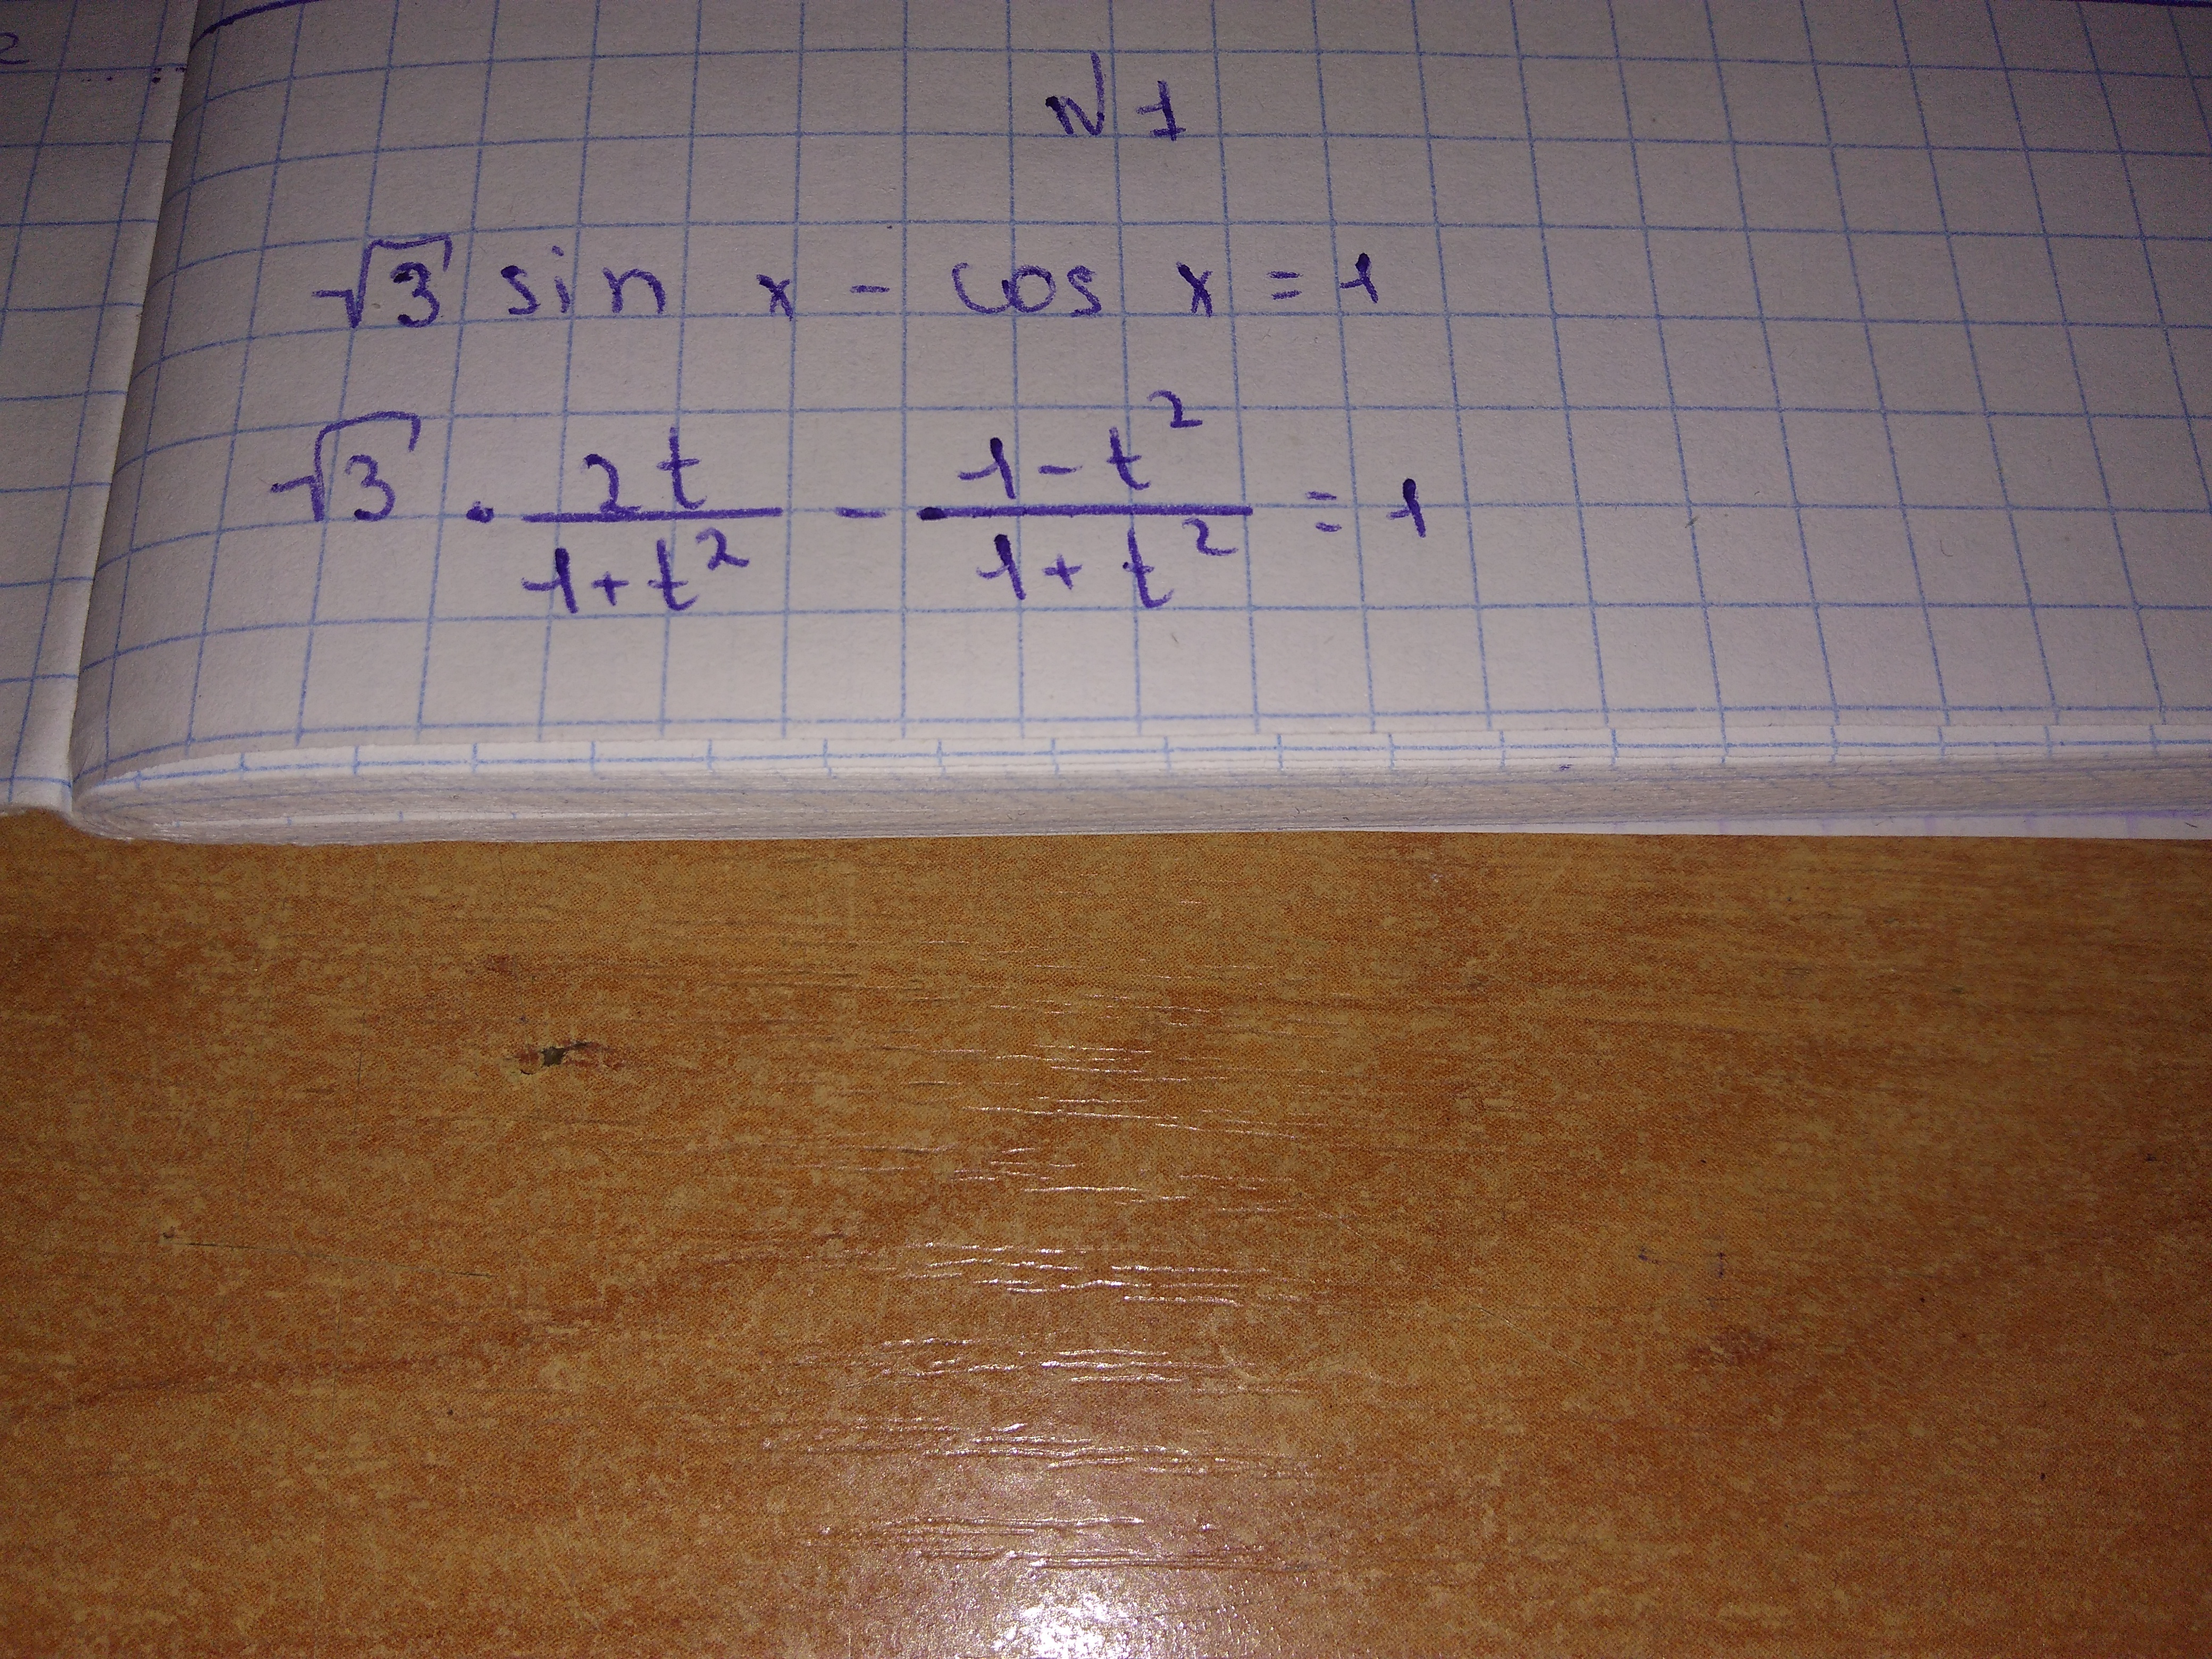 №1
√3 sin x - cos x = 1
√3 · 2t/(1+t²) - (1-t²)/(1+t²) = 1